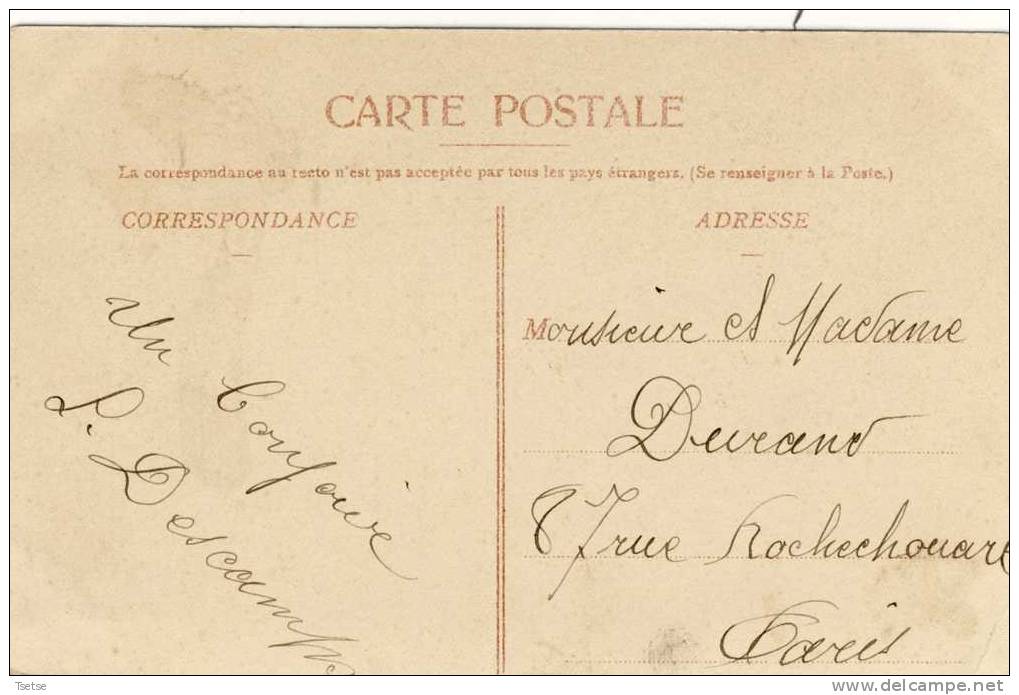 CARTE POSTALE
La correspondance au recto n'est pas acceptée par tous les pays étrangers. (Se renseigner à la Poste.)
CORRESPONDANCE
Un Bonjour
L. Descamps
ADRESSE
Monsieur et Madame
Durand
87 rue Rochechouard
Paris
Tsetse
www.delcampe.net